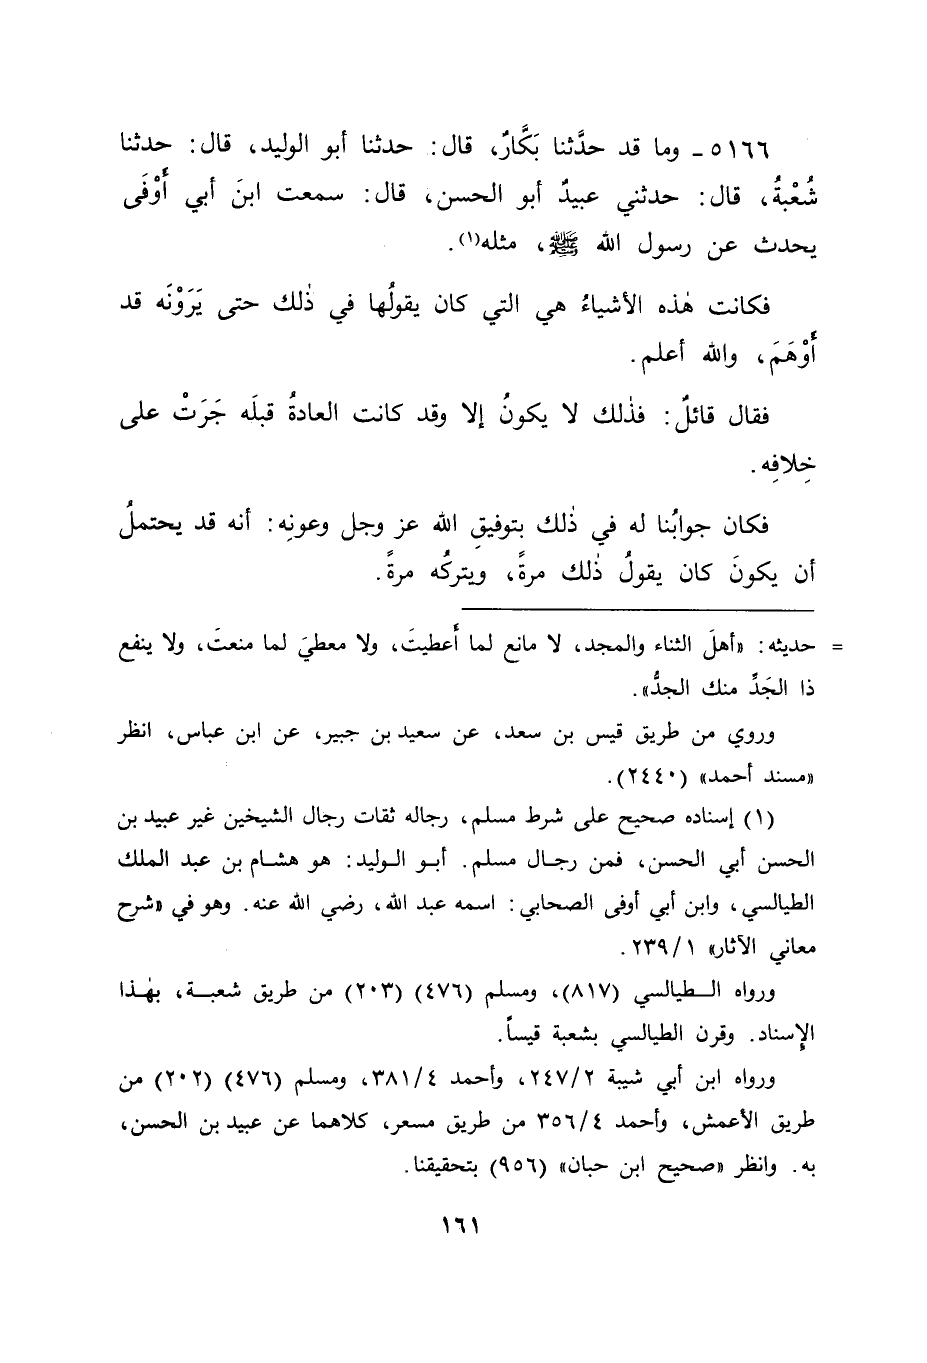 ٥١٦٦ - وما قد حدَّثنا بَكَّارٌ، قال: حدثنا أبو الوليد، قال: حدثنا
شُعْبةُ، قال: حدثني عبيدٌ أبو الحسن، قال: سمعت ابنَ أبي أَوْفَى
يحدث عن رسول الله ﷺ، مثله(١).
فكانت هٰذه الأشياءُ هي التي كان يقولُها في ذٰلك حتى يَرَوْنَه قد
أَوْهَمَ، والله أعلم.
فقال قائلٌ: فذٰلك لا يكونُ إلا وقد كانت العادةُ قبلَه جَرَتْ على
خِلافِه.
فكان جوابُنا له في ذٰلك بتوفيقِ الله عز وجل وعونِه: أنه قد يحتملُ
أن يكونَ كان يقولُ ذٰلك مرةً، ويتركُه مرةً.
= حديثه: «أهلَ الثناء والمجد، لا مانع لما أَعطيتَ، ولا معطيَ لما منعتَ، ولا ينفع
ذا الجَدِّ منك الجدُّ».
وروي من طريق قيس بن سعد، عن سعيد بن جبير، عن ابن عباس، انظر
«مسند أحمد» (٢٤٤٠).
(١) إسناده صحيح على شرط مسلم، رجاله ثقات رجال الشيخين غير عبيد بن
الحسن أبي الحسن، فمن رجال مسلم. أبو الوليد: هو هشام بن عبد الملك
الطيالسي، وابن أبي أوفى الصحابي: اسمه عبد الله، رضي الله عنه. وهو في «شرح
معاني الآثار» ٢٣٩/١.
ورواه الطيالسي (٨١٧)، ومسلم (٤٧٦) (٢٠٣) من طريق شعبة، بهٰذا
الإسناد. وقرن الطيالسي بشعبة قيساً.
ورواه ابن أبي شيبة ٢٤٧/٢، وأحمد ٣٨١/٤، ومسلم (٤٧٦) (٢٠٢) من
طريق الأعمش، وأحمد ٣٥٦/٤ من طريق مسعر، كلاهما عن عبيد بن الحسن،
به. وانظر «صحيح ابن حبان» (٩٥٦) بتحقيقنا.
١٦١